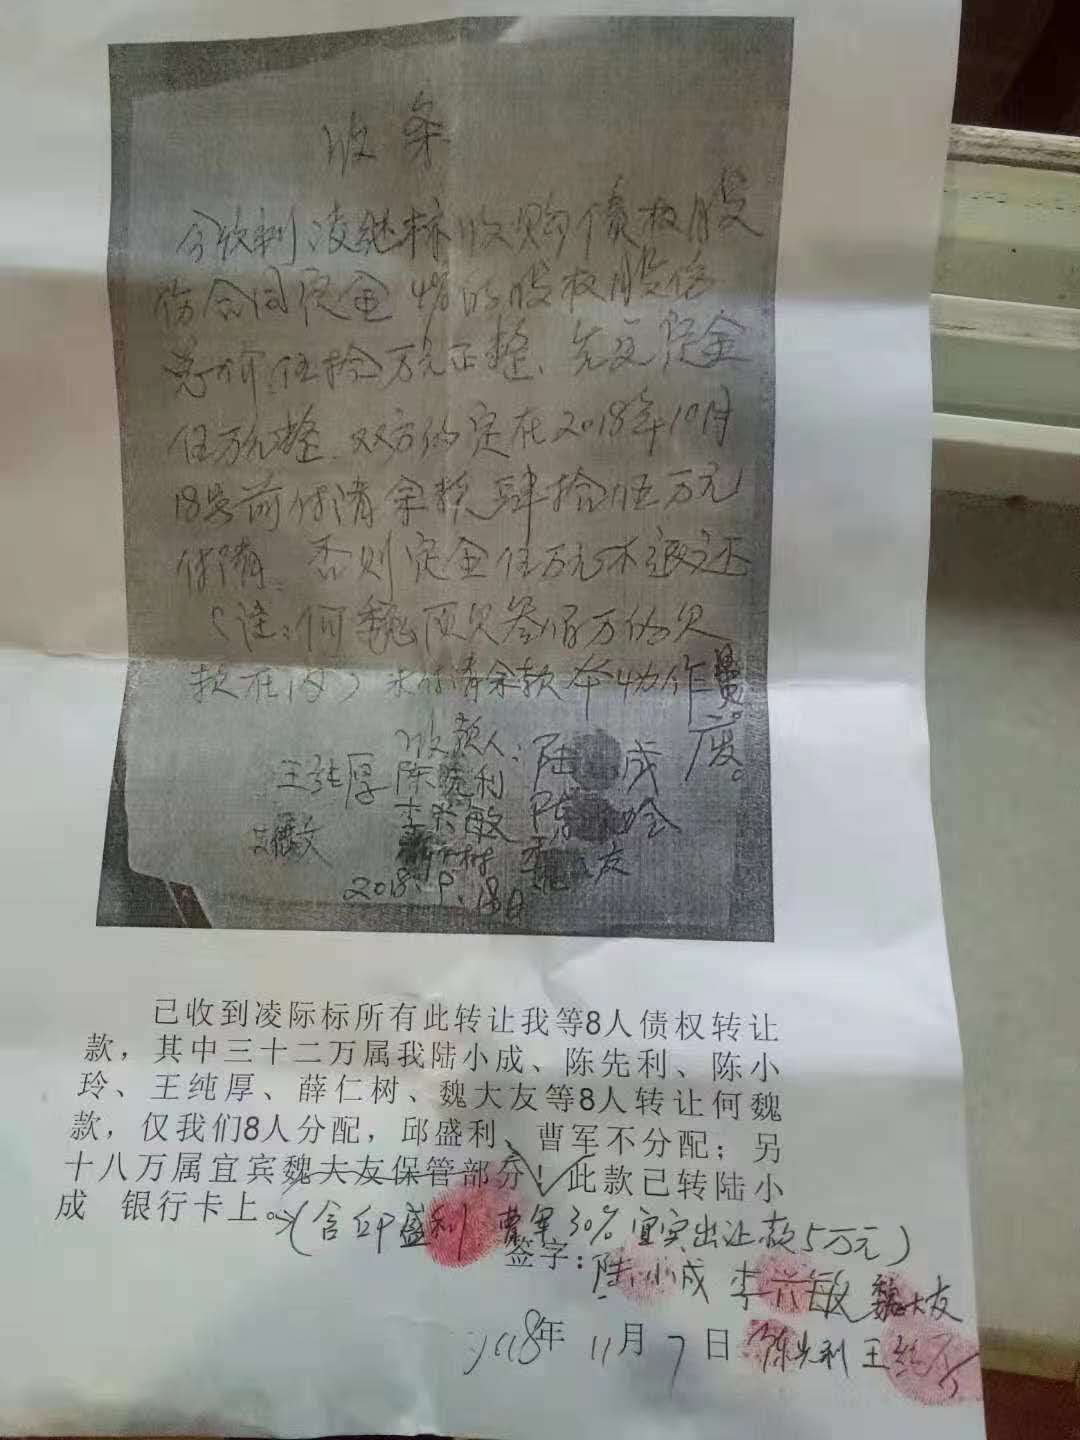 收条
今收到凌继标收购债权股
份合同定金4%的股权股份
总价伍拾万元正整、先交定金
伍万元整.双方约定在2018年10月
18号前付清余款肆拾伍万元
付清.否则定金伍万元不退还
(注:何魏顶欠叁佰万的欠
款在内)未付清余款条 作
废。
收款人:陆 成
王纯厚 陈先利
李兴敏 陈
树 魏 友
2018.9.18日
已收到凌际标所有此转让我等8人债权转让
款,其中三十二万属我陆小成、陈先利、陈小
玲、王纯厚、薛仁树、魏大友等8人转让何魏
款,仅我们8人分配,邱盛利、曹军不分配;另
十八万属宜宾魏大友保管部分!此款已转陆小
成 银行卡上。
(含邱盛利 曹军30%宜宾出让款5万元)
签字:陆小成 李兴敏 魏大友
2018年11月7日 陈先利 王纯厚